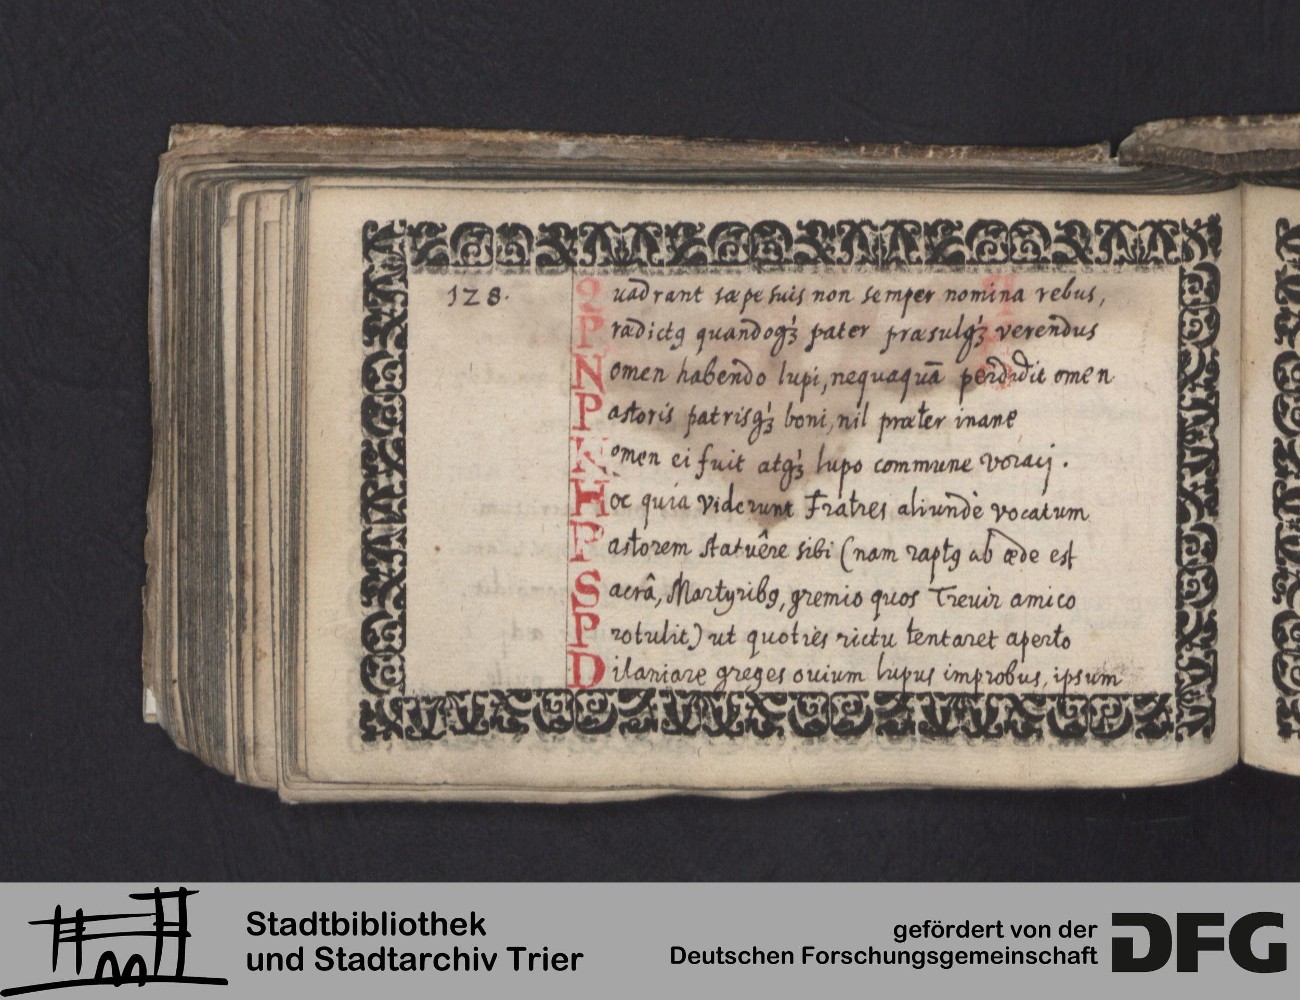 128.
Quadrant sæpe suis non semper nomina rebus,
Prædictꝯ quandoqꝫ pater præsulqꝫ verendus
Nomen habendo lupi, nequaquā perdidit omen
Pastoris patrisqꝫ boni, nil præter inane
Nomen ei fuit atqꝫ lupo commune voraci.
Hoc quia viderunt Fratres aliundè vocatum
Pastorem statuêre sibi (nam raptꝯ ab æde est
Sacrâ, Martyribꝯ, gremio quos Trevir amico
Protulit) ut quotiès rictu tentaret aperto
Dilaniare greges ovium lupus improbus, ipsum
Stadtbibliothek
und Stadtarchiv Trier
gefördert von der
Deutschen Forschungsgemeinschaft
DFG